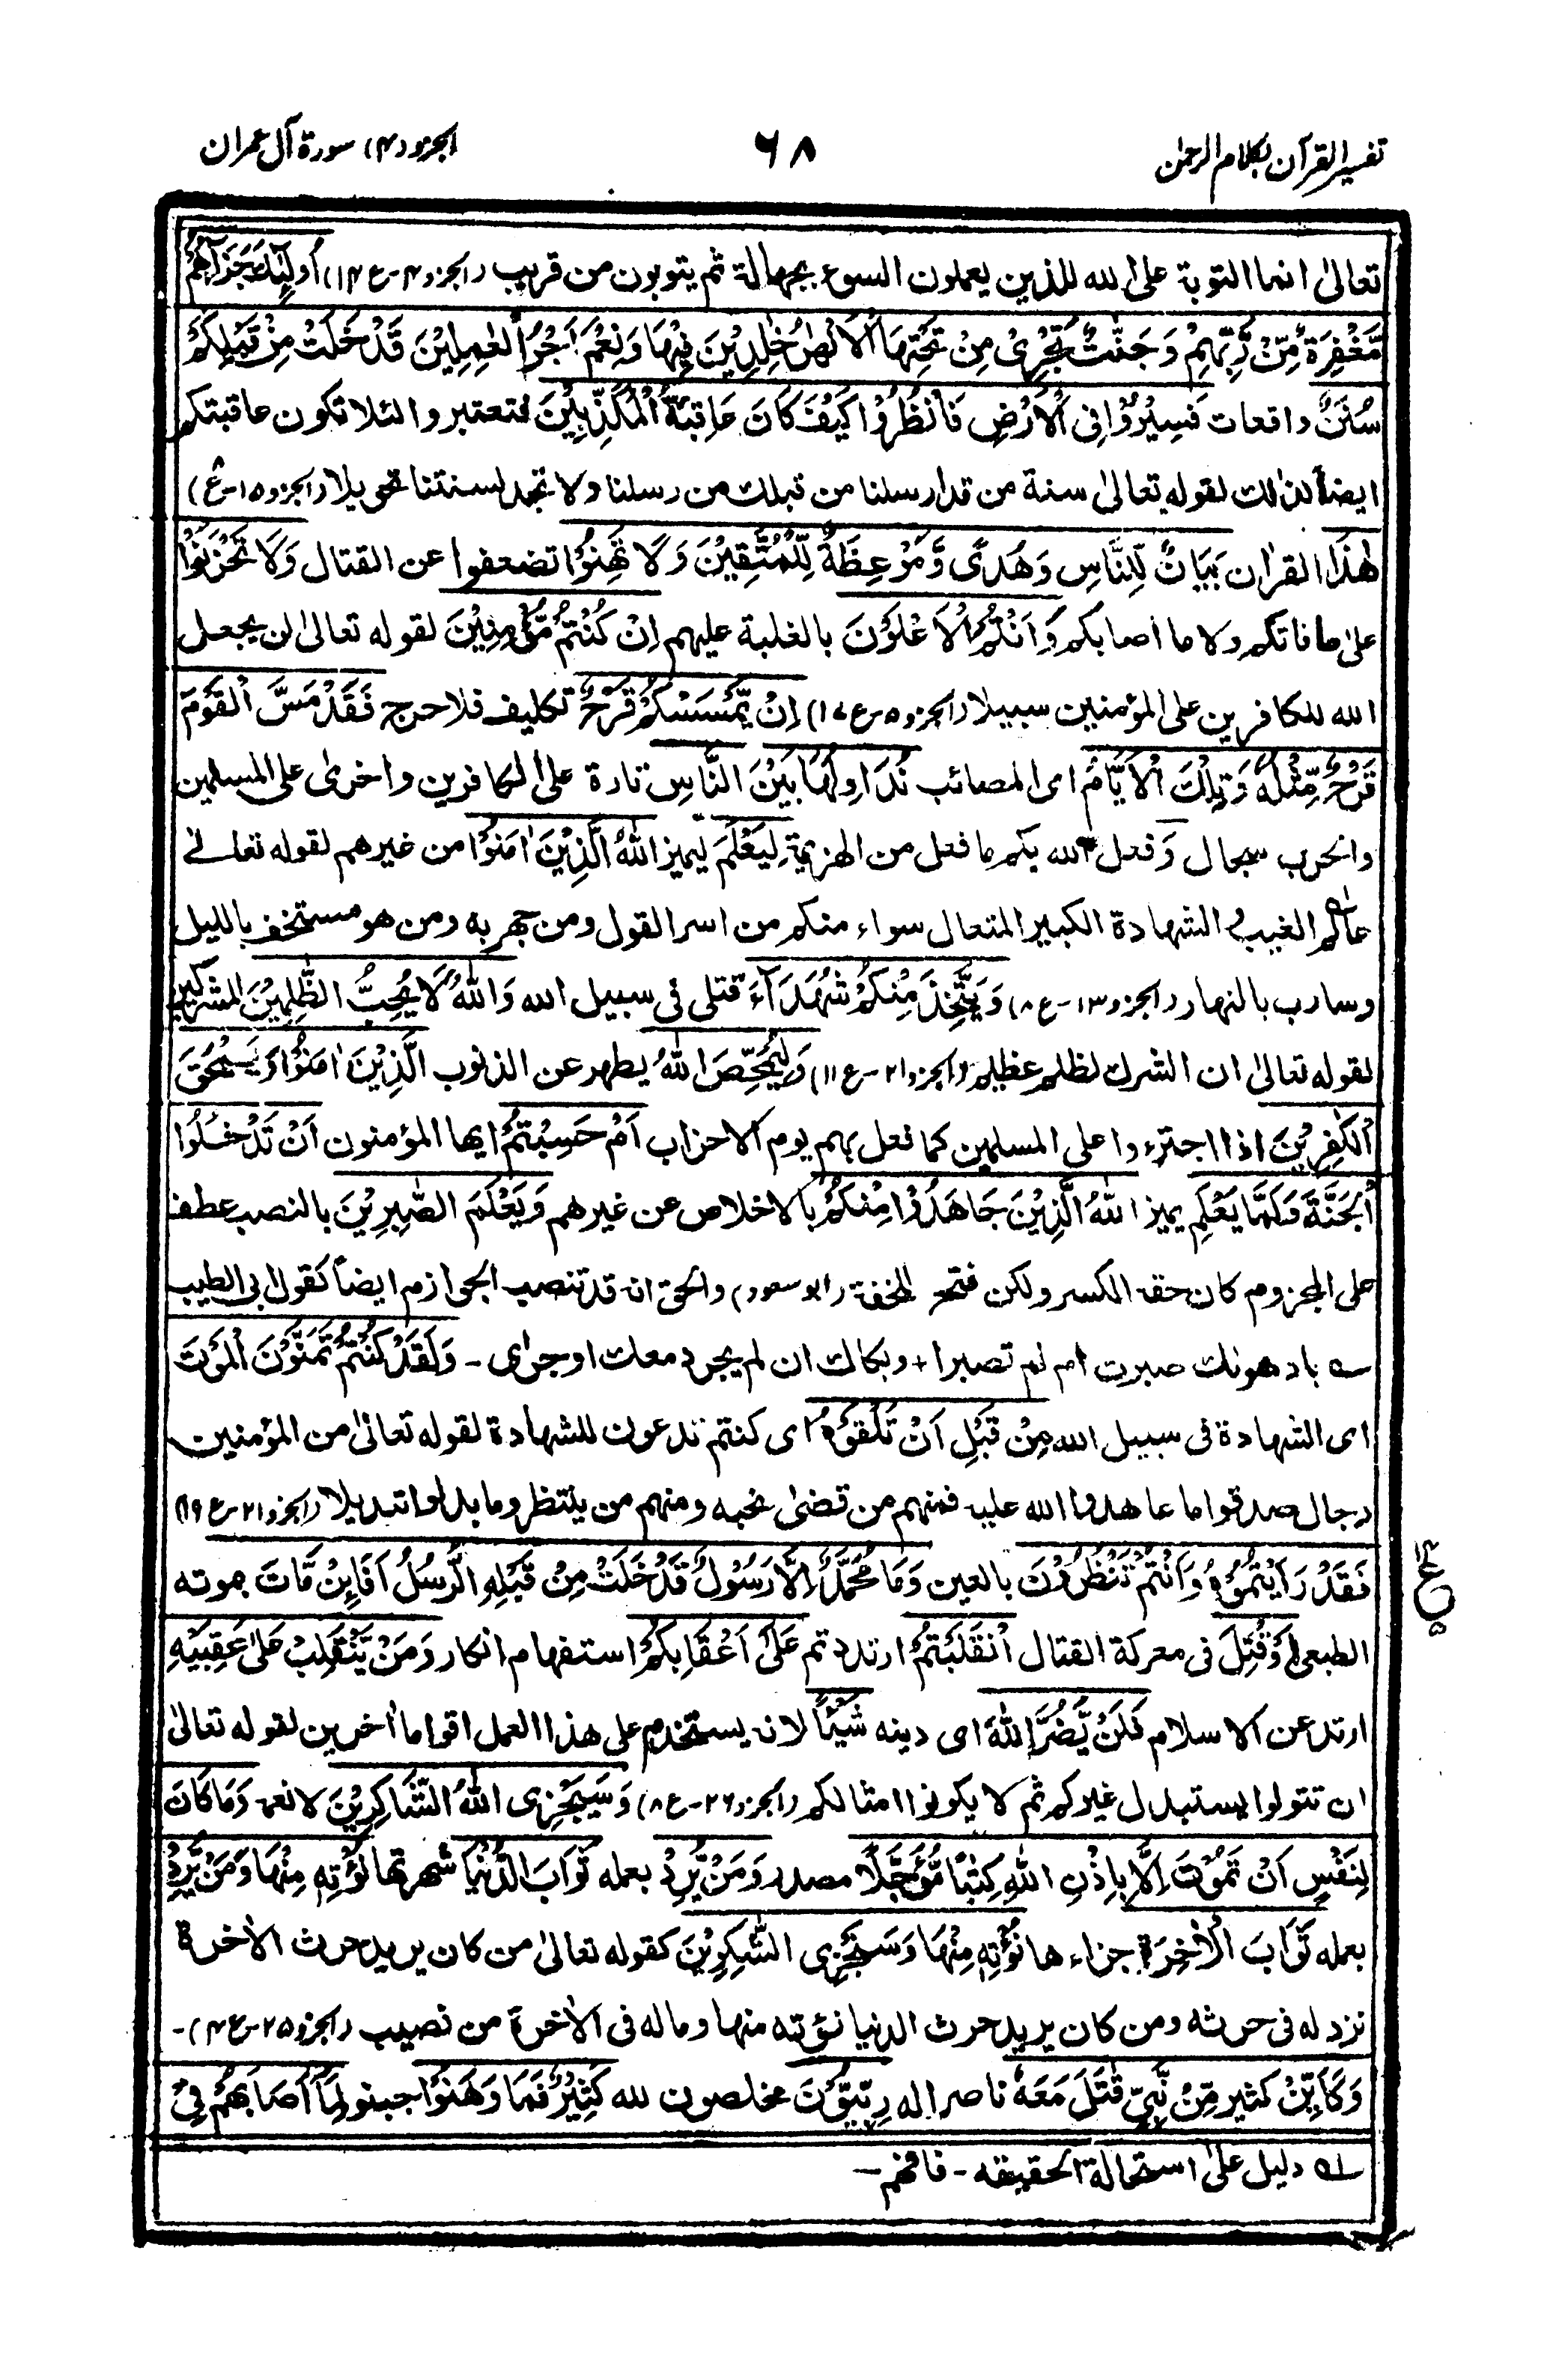 تفسير القرآن بكلام الرحمن
٦٨
الجزو (٤) سورة آل عمران
تعالىٰ انما التوبة على الله للذين يعملون السوء بجهالة ثم يتوبون من قريب (الجزو ٤-ع ١٤) أُولٰٓئِكَ جَزَآؤُهُمْ
مَّغْفِرَةٌ مِّنْ رَّبِّهِمْ وَجَنّٰتٌ تَجْرِىْ مِنْ تَحْتِهَا الْاَنْهٰرُ خٰلِدِيْنَ فِيْهَا وَنِعْمَ اَجْرُ الْعٰمِلِيْنَ قَدْ خَلَتْ مِنْ قَبْلِكُمْ
سُنَنٌ واقعات فَسِيْرُوْا فِى الْاَرْضِ فَانْظُرُوْا كَيْفَ كَانَ عَاقِبَةُ الْمُكَذِّبِيْنَ فتعتبروا لئلا تكون عاقبتكم
ايضاً كذالك لقوله تعالىٰ سنة من قد ارسلنا من قبلك من رسلنا ولا تجد لسنتنا تحويلا (الجزو ١٥-ع ٨)
هٰذَا القراٰن بَيَانٌ لِّلنَّاسِ وَهُدًى وَّمَوْعِظَةٌ لِّلْمُتَّقِيْنَ وَلَا تَهِنُوْا تضعفوا عن القتال وَلَا تَحْزَنُوْا
علىٰ ما فاتكم ولا ما اصابكم وَاَنْتُمُ الْاَعْلَوْنَ بالغلبة عليهم اِنْ كُنْتُمْ مُّؤْمِنِيْنَ لقوله تعالىٰ لن يجعل
الله للكافرين على المؤمنين سبيلا (الجزو ٥-ع ١٧) اِنْ يَّمْسَسْكُمْ قَرْحٌ تكليف فلا حرج فَقَدْ مَسَّ الْقَوْمَ
قَرْحٌ مِّثْلُهٗ وَتِلْكَ الْاَيَّامُ اى المصائب نُدَاوِلُهَا بَيْنَ النَّاسِ تارة على الكافرين واخرىٰ على المسلمين
والحرب سجال وَفعل الله بكم ما فعل من الهزيمة لِيَعْلَمَ ليميز اللّٰهُ الَّذِيْنَ اٰمَنُوْا من غيرهم لقوله تعالىٰ
عالم الغيب والشهادة الكبير المتعال سواء منكم من اسر القول ومن جهر به ومن هو مستخف بالليل
وسارب بالنهار (الجزو ١٣-ع ٨) وَيَتَّخِذَ مِنْكُمْ شُهَدَآءَ قتلى فى سبيل الله وَاللّٰهُ لَا يُحِبُّ الظّٰلِمِيْنَ المشركين
لقوله تعالىٰ ان الشرك لظلم عظيم (الجزو ٢١-ع ١١) وَلِيُمَحِّصَ اللّٰهُ يطهر عن الذنوب الَّذِيْنَ اٰمَنُوْا وَيَمْحَقَ
الْكٰفِرِيْنَ اذا اجترءوا على المسلمين كما فعل بهم يوم الاحزاب اَمْ حَسِبْتُمْ ايها المؤمنون اَنْ تَدْخُلُوا
الْجَنَّةَ وَلَمَّا يَعْلَمِ يميز اللّٰهُ الَّذِيْنَ جَاهَدُوْا مِنْكُمْ بالاخلاص عن غيرهم وَيَعْلَمَ الصّٰبِرِيْنَ بالنصب عطف
على المجزوم كان حقه الكسر ولكن فتح للخفة (ابو سعود) والحق انه قد تنصب الجوازم ايضاً كقول ابى الطيب
؎ باد هواك صبرت ام لم تصبرا + وبكاك ان لم يجر دمعك او جراى - وَلَقَدْ كُنْتُمْ تَمَنَّوْنَ الْمَوْتَ
اى الشهادة فى سبيل الله مِنْ قَبْلِ اَنْ تَلْقَوْهُ اى كنتم تدعون للشهادة لقوله تعالىٰ من المؤمنين
رجال صدقوا ما عاهدوا الله عليه فمنهم من قضىٰ نحبه ومنهم من ينتظر وما بدلوا تبديلا (الجزو ٢١-ع ١٩)
فَقَدْ رَاَيْتُمُوْهُ وَاَنْتُمْ تَنْظُرُوْنَ بالعين وَمَا مُحَمَّدٌ اِلَّا رَسُوْلٌ قَدْ خَلَتْ مِنْ قَبْلِهِ الرُّسُلُ اَفَا۟ئِنْ مَّاتَ بموته
الطبعى اَوْ قُتِلَ فى معركة القتال انْقَلَبْتُمْ ارتددتم عَلٰٓى اَعْقَابِكُمْ استفهام انكار وَمَنْ يَّنْقَلِبْ عَلٰى عَقِبَيْهِ
ارتد عن الاسلام فَلَنْ يَّضُرَّ اللّٰهَ اى دينه شَيْئًا لانه يستخدم على هذا العمل اقواما اٰخرين لقوله تعالىٰ
ان تتولوا يستبدل غيركم ثم لا يكونوا امثالكم (الجزو ٢٦-ع ٨) وَسَيَجْزِى اللّٰهُ الشّٰكِرِيْنَ لانعمه وَمَا كَانَ
لِنَفْسٍ اَنْ تَمُوْتَ اِلَّا بِاِذْنِ اللّٰهِ كِتٰبًا مُّؤَجَّلًا مصدر وَمَنْ يُّرِدْ بعمله ثَوَابَ الدُّنْيَا شهرتها نُؤْتِهٖ مِنْهَا وَمَنْ يُّرِدْ
بعمله ثَوَابَ الْاٰخِرَةِ جزاءها نُؤْتِهٖ مِنْهَا وَسَنَجْزِى الشّٰكِرِيْنَ كقوله تعالىٰ من كان يريد حرث الاٰخرة
نزد له فى حرثه ومن كان يريد حرث الدنيا نؤته منها وما له فى الاٰخرة من نصيب (الجزو ٢٥-ع ٤)-
وَكَاَيِّنْ كثير مِّنْ نَّبِىٍّ قٰتَلَ مَعَهٗ ناصرا له رِبِّيُّوْنَ مخلصون لله كَثِيْرٌ فَمَا وَهَنُوْا جبنوا لِمَآ اَصَابَهُمْ فِىْ
؎ دليل علىٰ استحالة الحقيقه - فافهم -